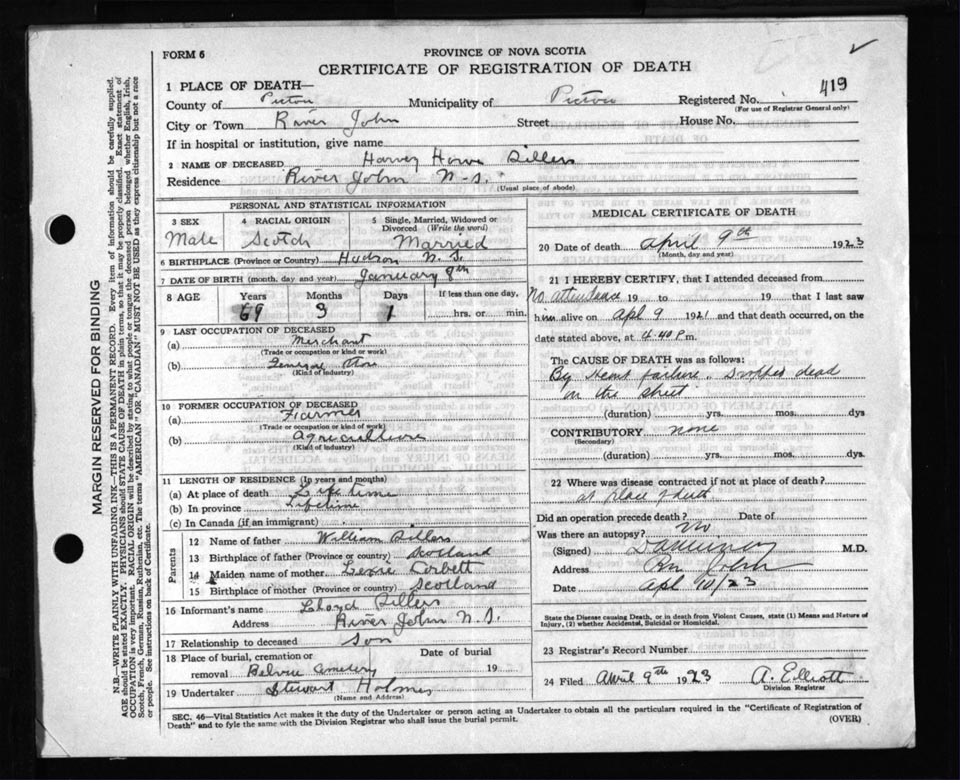 FORM 6
PROVINCE OF NOVA SCOTIA
CERTIFICATE OF REGISTRATION OF DEATH
1 PLACE OF DEATH—
County of Pictou Municipality of Pictou Registered No. 419
(For use of Registrar General only)
City or Town River John Street House No.
If in hospital or institution, give name
2 NAME OF DECEASED Harvey Howe Sillers
Residence River John N-S.
(Usual place of abode)
PERSONAL AND STATISTICAL INFORMATION
3 SEX 4 RACIAL ORIGIN 5 Single, Married, Widowed or Divorced (Write the word)
Male Scotch Married
6 BIRTHPLACE (Province or Country) Hudson N.S.
7 DATE OF BIRTH (month, day and year) January 8th
8 AGE Years Months Days If less than one day,
69 3 1 hrs. or min.
9 LAST OCCUPATION OF DECEASED
(a) Merchant
(Trade or occupation or kind or work)
(b) General Store
(Kind of industry)
10 FORMER OCCUPATION OF DECEASED
(a) Farmer
(Trade or occupation or kind or work)
(b) Agriculture
(Kind of industry)
11 LENGTH OF RESIDENCE (In years and months)
(a) At place of death Life time
(b) In province Lifetime
(c) In Canada (if an immigrant)
Parents
12 Name of father William Sillers
13 Birthplace of father (Province or country) Scotland
14 Maiden name of mother Lexie Corbett
15 Birthplace of mother (Province or country) Scotland
16 Informant's name Lloyd Sillers
Address River John N.S.
17 Relationship to deceased Son
18 Place of burial, cremation or removal Date of burial
Cemetery 19
19 Undertaker Stewart Holmes
(Name and Address)
MEDICAL CERTIFICATE OF DEATH
20 Date of death April 9th 1923
(Month, day and year)
21 I HEREBY CERTIFY, that I attended deceased from
No attendance 19 to 19 that I last saw
him alive on Apl 9 1921 and that death occurred, on the
date stated above, at 4.40 P m.
The CAUSE OF DEATH was as follows:
By Heart failure. Dropped dead
on the street
(duration) yrs. mos. dys
CONTRIBUTORY none
(Secondary)
(duration) yrs. mos. dys.
22 Where was disease contracted if not at place of death?
at place of death
Did an operation precede death? no Date of
Was there an autopsy?
(Signed) M.D.
Address River John
Date Apl 10/23
State the Disease causing Death, or in death from Violent Causes, state (1) Means and Nature of
Injury, (2) whether Accidental, Suicidal or Homicidal.
23 Registrar's Record Number
24 Filed April 9th 1923 A. Elliott
Division Registrar
SEC. 46—Vital Statistics Act makes it the duty of the Undertaker or person acting as Undertaker to obtain all the particulars required in the "Certificate of Registration of
Death" and to fyle the same with the Division Registrar who shall issue the burial permit.
(OVER)
MARGIN RESERVED FOR BINDING
N.B.—WRITE PLAINLY WITH UNFADING INK—THIS IS A PERMANENT RECORD. Every item of information should be carefully supplied.
AGE should be stated EXACTLY. PHYSICIANS should STATE CAUSE OF DEATH in plain terms, so that it may be properly classified. Exact statement of
OCCUPATION is very important. RACIAL ORIGIN will be described by stating to what people or tongue the deceased person belonged, whether English, Irish,
Scotch, French, German, Russian, Ruthenian, etc. The terms "AMERICAN" OR "CANADIAN" MUST NOT BE USED as they express citizenship but not a race
or people. See instructions on back of Certificate.